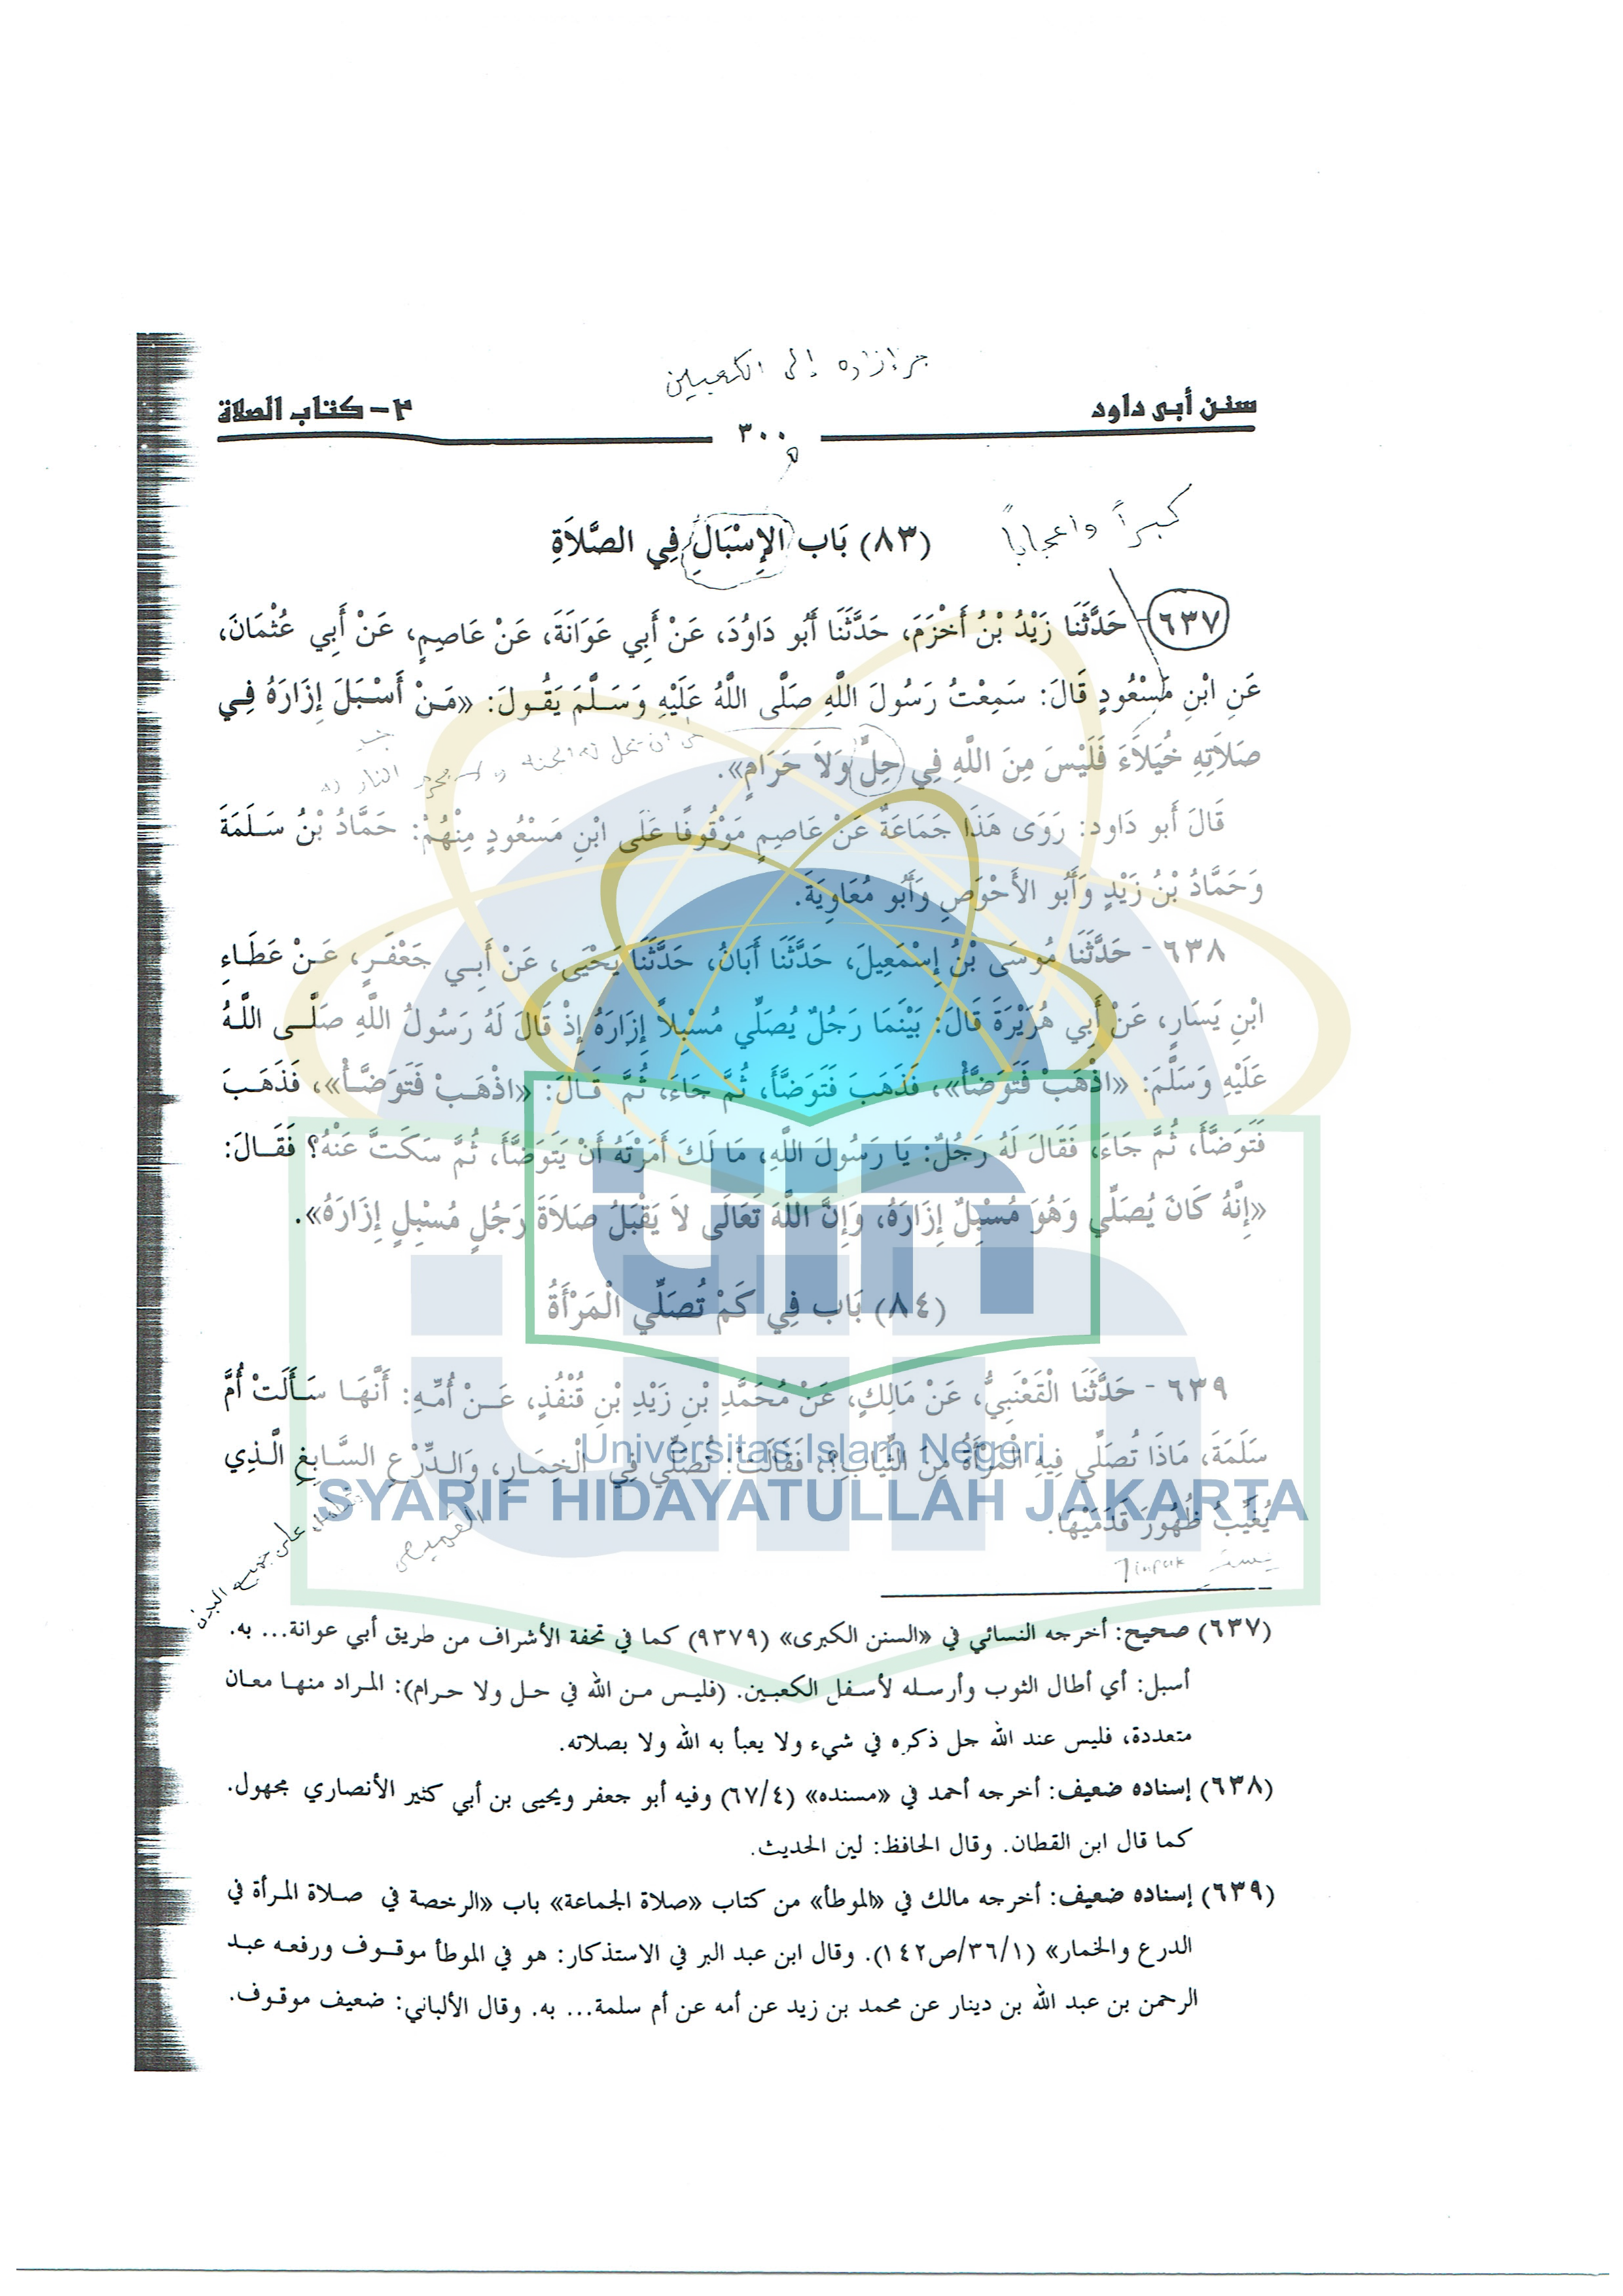 جر إزاره إلى الكعبين
سنن أبى داود
٢- كتاب الصلاة
٣٠٠
كبراً واعجاباً
(٨٣) بَاب الإِسْبَالِ فِي الصَّلاَةِ
٦٣٧- حَدَّثَنَا زَيْدُ بْنُ أَخْزَمَ، حَدَّثَنَا أَبُو دَاوُدَ، عَنْ أَبِي عَوَانَةَ، عَنْ عَاصِمٍ، عَنْ أَبِي عُثْمَانَ،
عَنِ ابْنِ مَسْعُودٍ قَالَ: سَمِعْتُ رَسُولَ اللَّهِ صَلَّى اللَّهُ عَلَيْهِ وَسَلَّمَ يَقُولَ: «مَنْ أَسْبَلَ إِزَارَهُ فِي
صَلاَتِهِ خُيَلاَءَ فَلَيْسَ مِنَ اللَّهِ فِي حِلٍّ وَلاَ حَرَامٍ».
قَالَ أَبو دَاود: رَوَى هَذَا جَمَاعَةٌ عَنْ عَاصِمٍ مَوْقُوفًا عَلَى ابْنِ مَسْعُودٍ مِنْهُمْ: حَمَّادُ بْنُ سَلَمَةَ
وَحَمَّادُ بْنُ زَيْدٍ وَأَبُو الأَحْوَصِ وَأَبُو مُعَاوِيَةَ.
٦٣٨ - حَدَّثَنَا مُوسَى بْنُ إِسْمَعِيلَ، حَدَّثَنَا أَبَانُ، حَدَّثَنَا يَحْيَى، عَنْ أَبِي جَعْفَرٍ، عَنْ عَطَاءِ
ابْنِ يَسَارٍ، عَنْ أَبِي هُرَيْرَةَ قَالَ: بَيْنَمَا رَجُلٌ يُصَلِّي مُسْبِلاً إِزَارَهُ إِذْ قَالَ لَهُ رَسُولُ اللَّهِ صَلَّى اللَّهُ
عَلَيْهِ وَسَلَّمَ: «اذْهَبْ فَتَوَضَّأْ»، فَذَهَبَ فَتَوَضَّأَ، ثُمَّ جَاءَ، ثُمَّ قَالَ: «اذْهَبْ فَتَوَضَّأْ»، فَذَهَبَ
فَتَوَضَّأَ، ثُمَّ جَاءَ، فَقَالَ لَهُ رَجُلٌ: يَا رَسُولَ اللَّهِ، مَا لَكَ أَمَرْتَهُ أَنْ يَتَوَضَّأَ، ثُمَّ سَكَتَّ عَنْهُ؟ فَقَالَ:
«إِنَّهُ كَانَ يُصَلِّي وَهُوَ مُسْبِلٌ إِزَارَهُ، وَإِنَّ اللَّهَ تَعَالَى لاَ يَقْبَلُ صَلاَةَ رَجُلٍ مُسْبِلٍ إِزَارَهُ».
(٨٤) بَاب فِي كَمْ تُصَلِّي الْمَرْأَةُ
٦٣٩ - حَدَّثَنَا الْقَعْنَبِيُّ، عَنْ مَالِكٍ، عَنْ مُحَمَّدِ بْنِ زَيْدِ بْنِ قُنْفُذٍ، عَنْ أُمِّهِ: أَنَّهَا سَأَلَتْ أُمَّ
سَلَمَةَ، مَاذَا تُصَلِّي فِيهِ الْمَرْأَةُ مِنَ الثِّيَابِ؟، فَقَالَتْ: تُصَلِّي فِي الْخِمَارِ، وَالدِّرْعِ السَّابِغِ الَّذِي
Universitas Islam Negeri
SYARIF HIDAYATULLAH JAKARTA
يُغَيِّبُ ظُهُورَ قَدَمَيْهَا.
القميص
على جميع البدن
(٦٣٧) صحيح: أخرجه النسائي في «السنن الكبرى» (٩٣٧٩) كما في تحفة الأشراف من طريق أبي عوانة... به.
أسبل: أي أطال الثوب وأرسله لأسفل الكعبين. (فليس من الله في حل ولا حرام): المراد منها معان
متعددة، فليس عند الله جل ذكره في شيء ولا يعبأ به الله ولا بصلاته.
(٦٣٨) إسناده ضعيف: أخرجه أحمد في «مسنده» (٦٧/٤) وفيه أبو جعفر ويحيى بن أبي كثير الأنصاري مجهول.
كما قال ابن القطان. وقال الحافظ: لين الحديث.
(٦٣٩) إسناده ضعيف: أخرجه مالك في «الموطأ» من كتاب «صلاة الجماعة» باب «الرخصة في صلاة المرأة في
الدرع والخمار» (٣٦/١/ص١٤٢). وقال ابن عبد البر في الاستذكار: هو في الموطأ موقوف ورفعه عبد
الرحمن بن عبد الله بن دينار عن محمد بن زيد عن أمه عن أم سلمة... به. وقال الألباني: ضعيف موقوف.